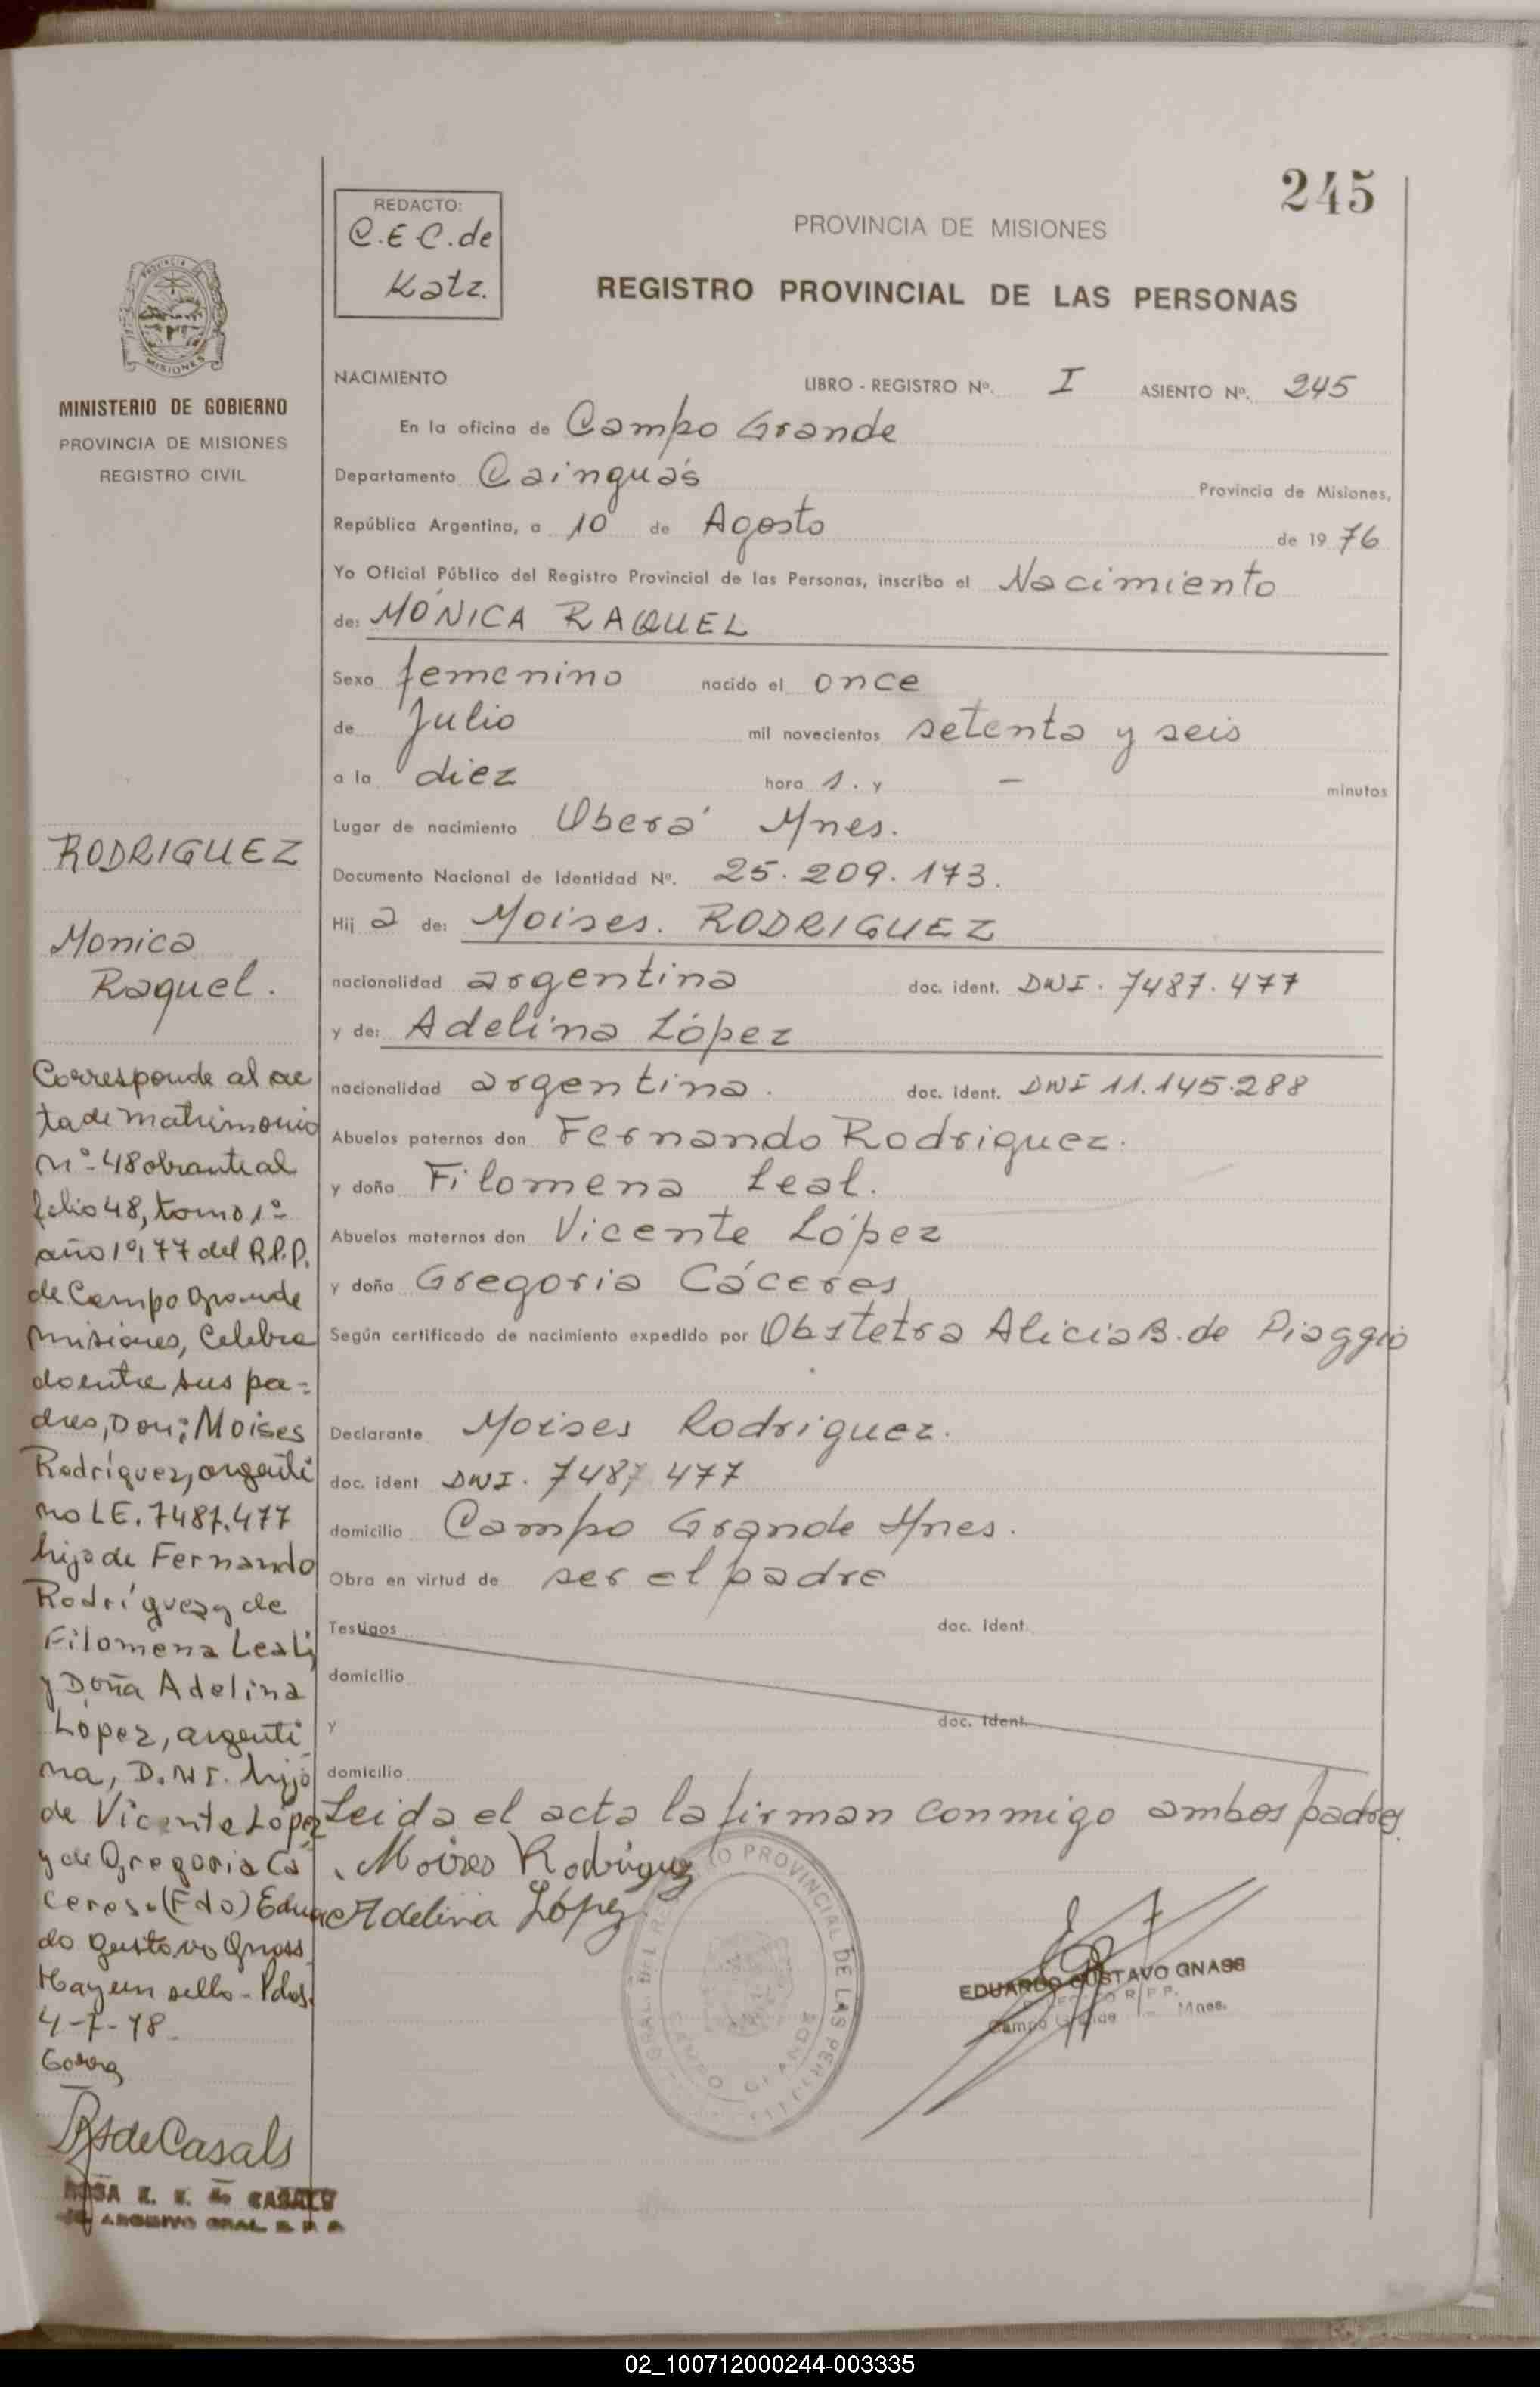 245
REDACTO:
C.E C. de
Katz.
PROVINCIA DE MISIONES
REGISTRO PROVINCIAL DE LAS PERSONAS
MISIONES
MINISTERIO DE GOBIERNO
PROVINCIA DE MISIONES
REGISTRO CIVIL
NACIMIENTO LIBRO - REGISTRO Nº. I ASIENTO Nº. 245
En la oficina de Campo Grande
Departamento Cainguás Provincia de Misiones,
República Argentina, a 10 de Agosto de 19 76
Yo Oficial Público del Registro Provincial de las Personas, inscribo el Nacimiento
de: MÓNICA RAQUEL
Sexo femenino nacido el once
de Julio mil novecientos setenta y seis
a la diez hora s. y — minutos
Lugar de nacimiento Oberá Mnes.
Documento Nacional de Identidad Nº. 25.209.173.
Hij a de: Moises. RODRIGUEZ
nacionalidad argentina doc. ident. DNI. 7487.477
y de: Adelina López
nacionalidad argentina. doc. ident. DNI 11.145.288
Abuelos paternos don Fernando Rodriguez.
y doña Filomena Leal.
Abuelos maternos don Vicente López
y doña Gregoria Cáceres
Según certificado de nacimiento expedido por Obstetra Alicia B. de Piaggio
Declarante Moises Rodriguez.
doc. ident DNI. 7487 477
domicilio Campo Grande Mnes.
Obra en virtud de ser el padre
Testigos doc. ident.
domicilio
y doc. ident.
domicilio
Leida el acta la firman conmigo ambos padres.
Moises Rodriguez
Adelina López
REGISTRO PROVINCIAL DE LAS PERSONAS
CAMPO GRANDE
EDUARDO GUSTAVO GNASS
R.P.P.
Campo Grande Mnes.
RODRIGUEZ
Monica
Raquel.
Corresponde al ac
ta de matrimonio
Nº 48 obrante al
folio 48, tomo 1º
año 1977 del R.P.P.
de Campo Grande
Misiones, Celebra
do entre sus pa=
dres, Don: Moises
Rodríguez, argenti
no LE. 7487.477
hijo de Fernando
Rodríguez y de
Filomena Leal;
y Doña Adelina
López, argenti
na, D.N.I. hija
de Vicente López
y de Gregoria Cá
ceres. (Fdo) Eduar
do Gustavo Gnass
Hay un sello - Pdas.
4-7-78
RSdeCasals
ROSA de CASALS
ARCHIVO GRAL R.P.P.
02_100712000244-003335